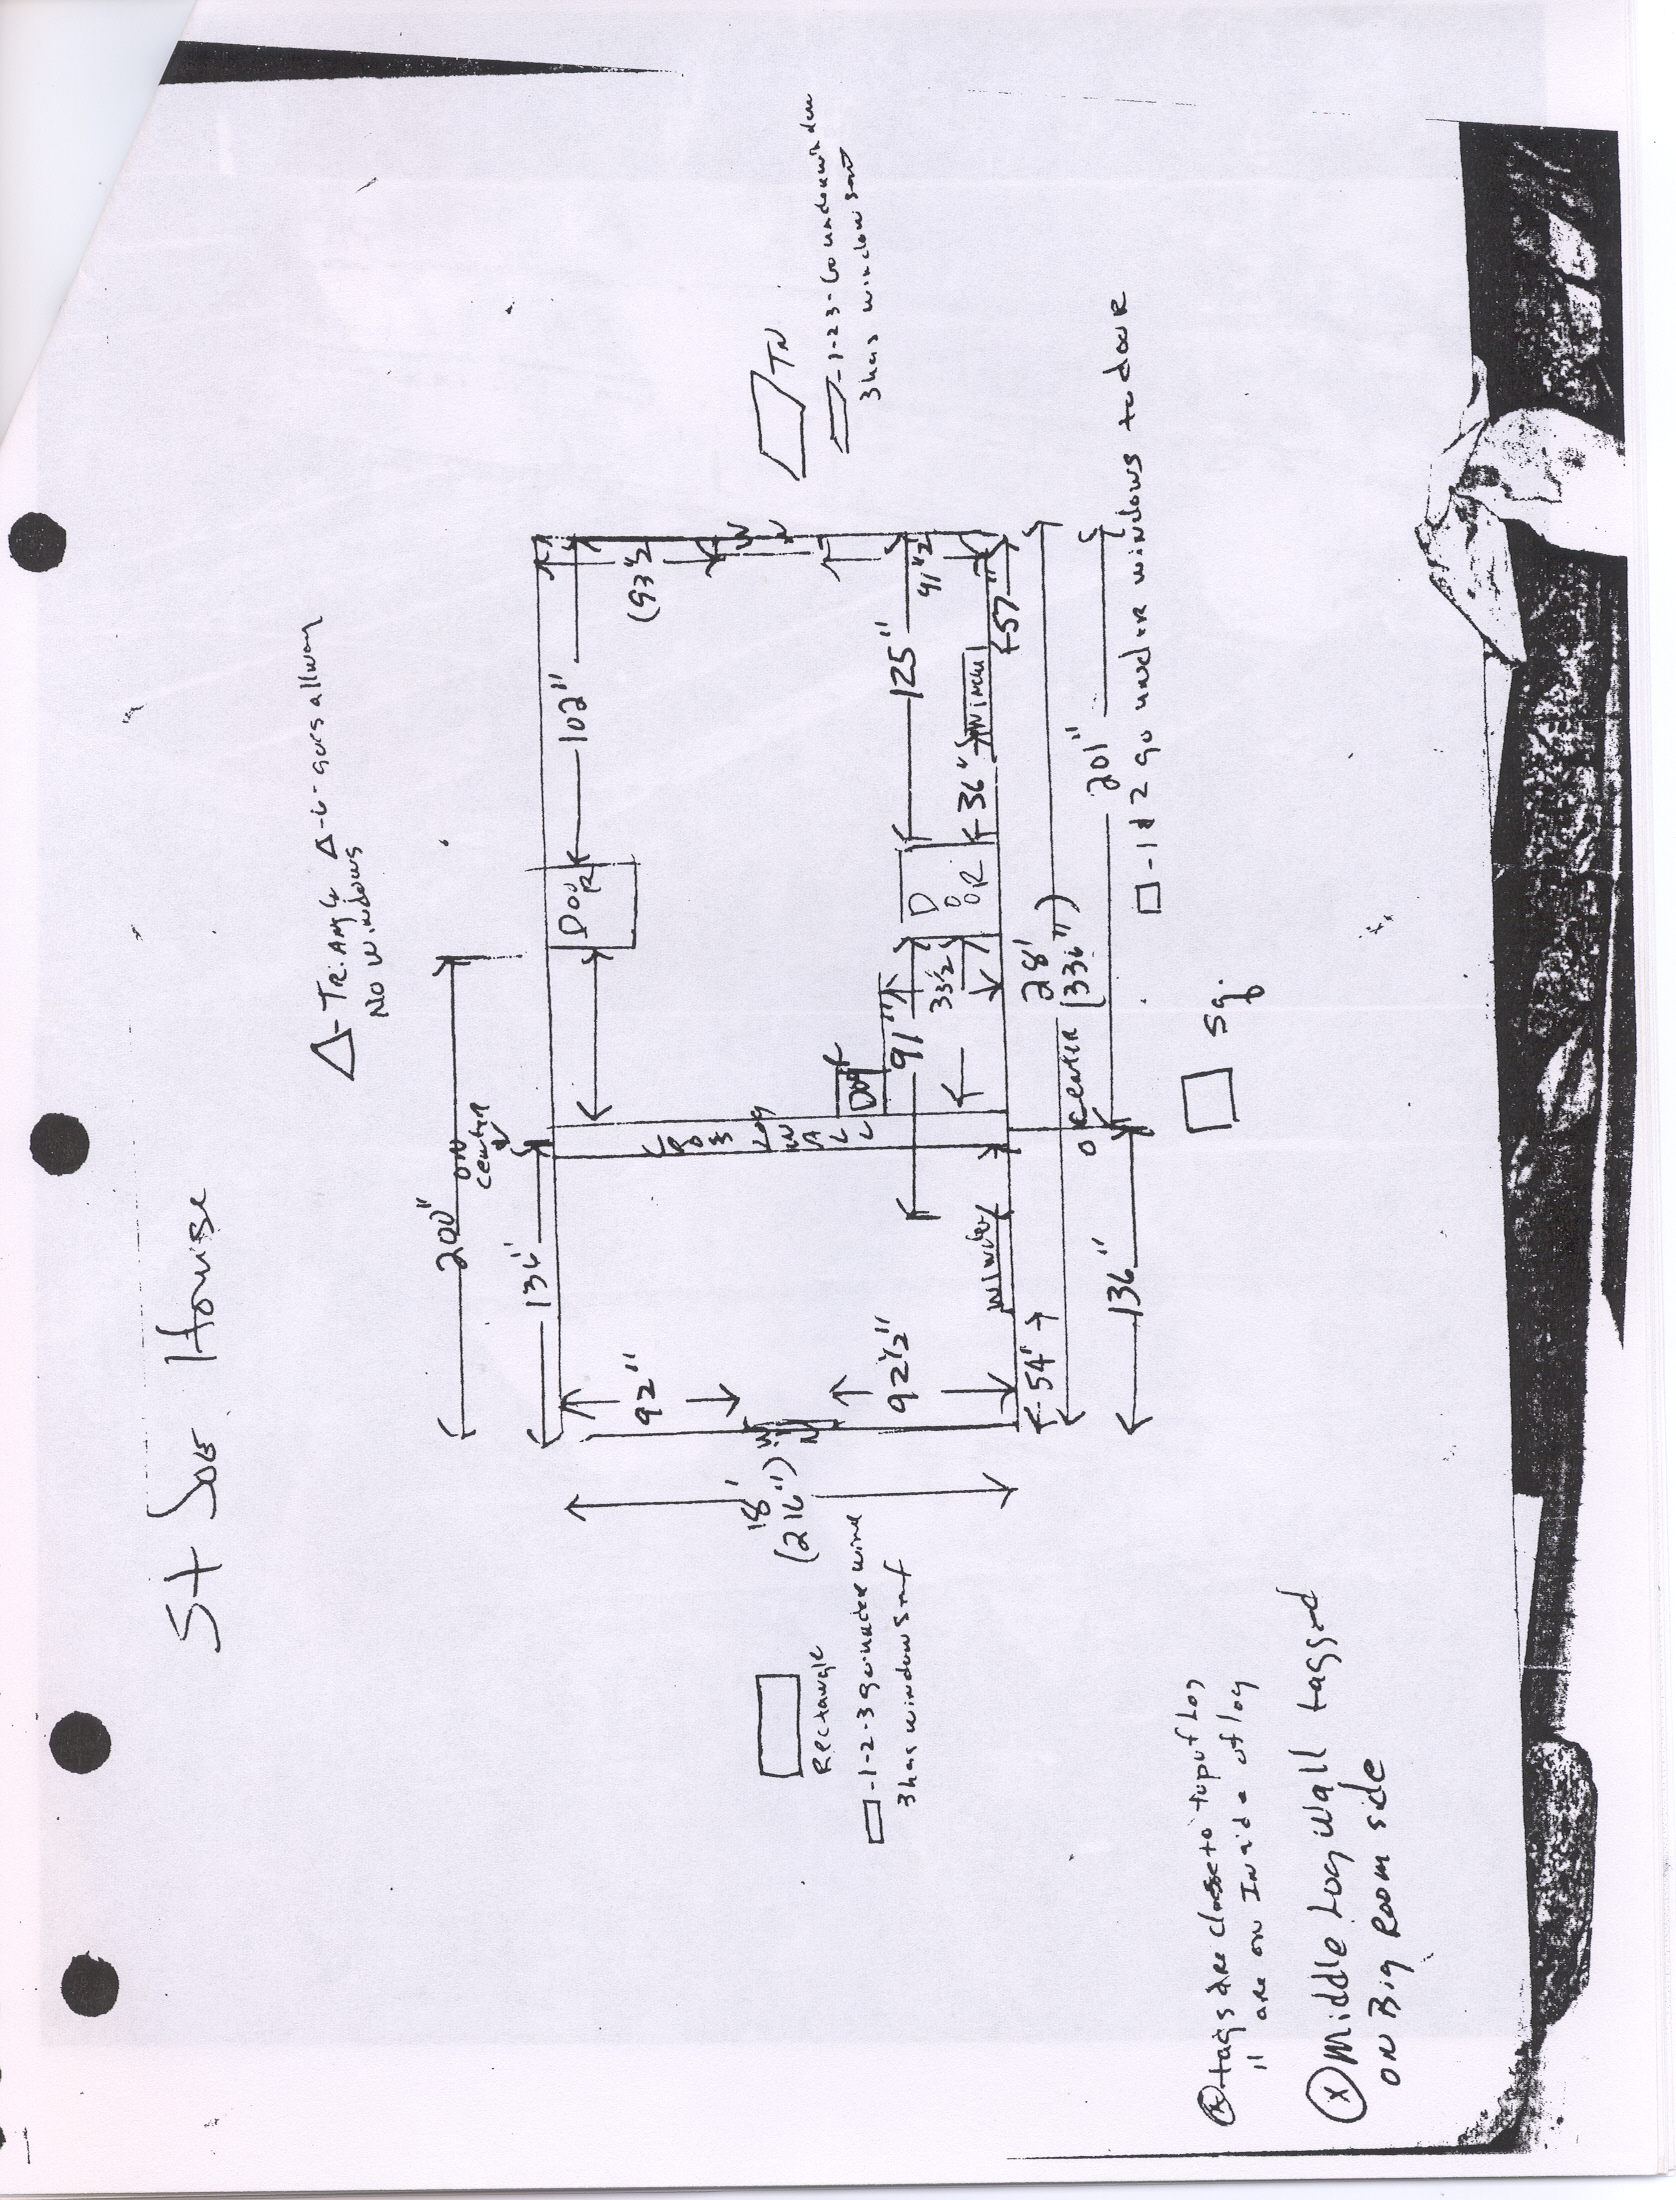 St Joe House
Δ-TRiANgle
NO Windows
Δ-6-goes all way
200"
ON
Center
136"
102"
DOOR
92"
(93½
18'
(216")
WIN
LOG
WALL
125"
91"2
91"
DOOR
33½
36"
57"
92½"
Window
54"
28'
(336")
ON Center
201"
136"
RECtangle
▭-1-2-3 go under wind
3 has windows
▱-1-2-3-Go under
3 has window
□-1 & 2 go under windows to door
□ Sq.
Ⓧ tags are close to top of Log
" are on Inside of log
Ⓧ Middle Log Wall tagged
ON Big Room side